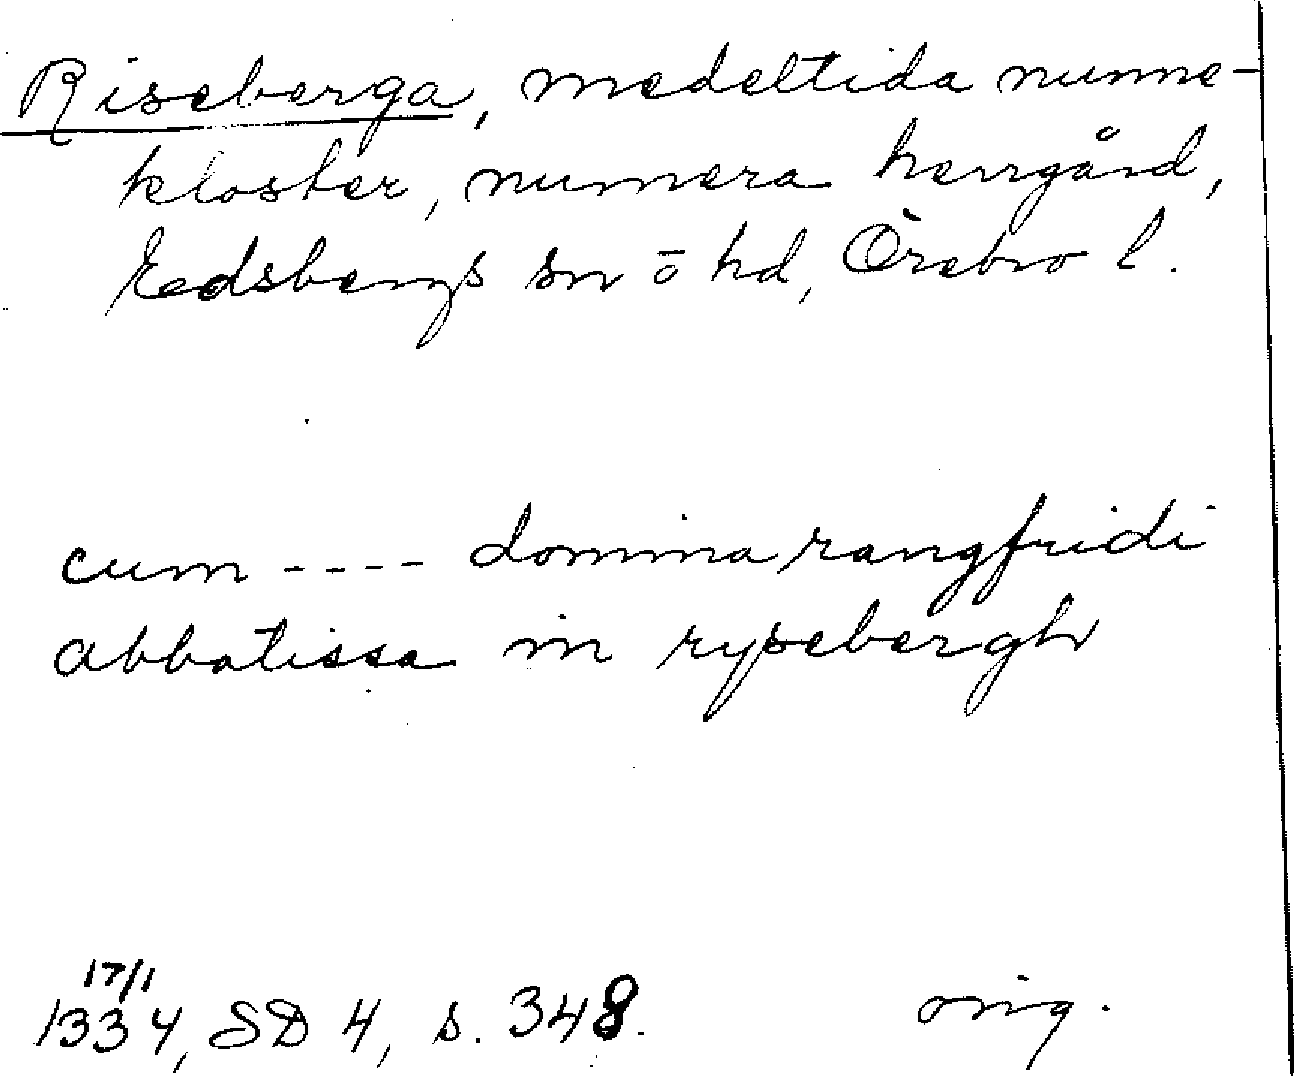 Riseberga, medeltida nunne-
kloster, numera herrgård,
Edsbergs sn o hd, Örebro l.
cum ---- domina rangfridi
abbatissa in rysebergh
17/1
1334, SD 4, s. 348.
orig.